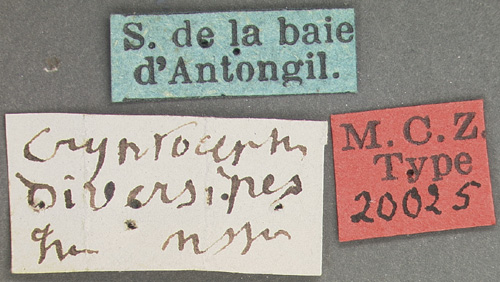 S. de la baie
d'Antongil.
Cryptoceph
diversipes
M. C. Z.
Type
20025